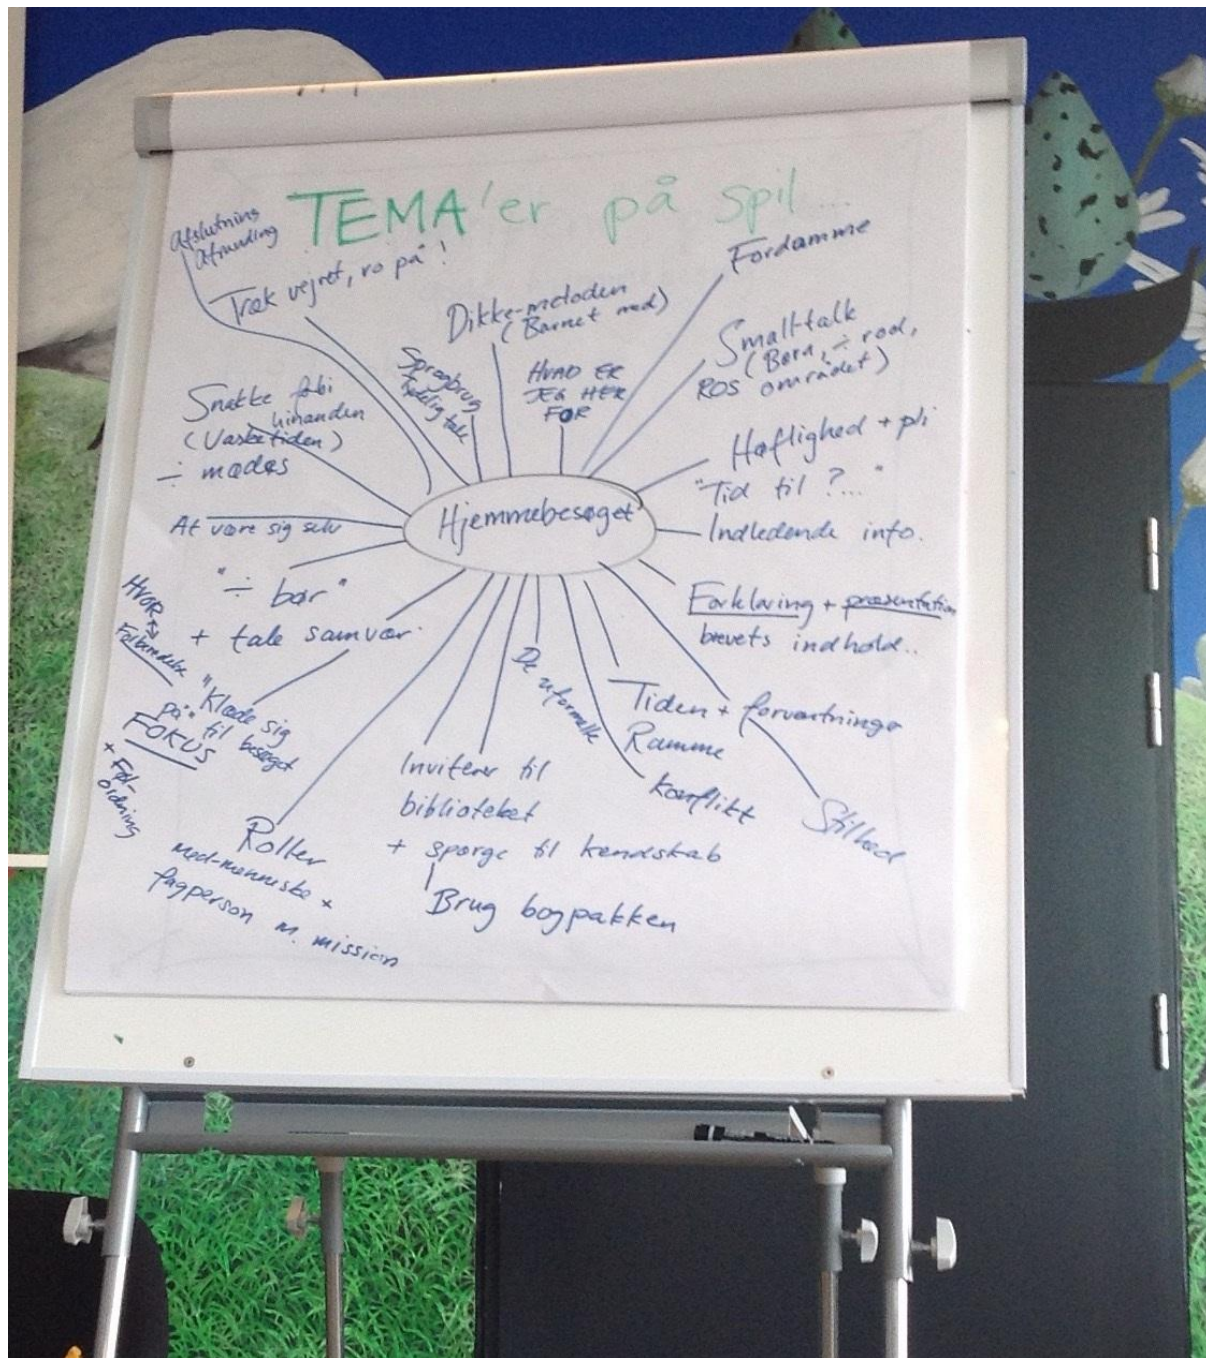 TEMA'er på spil...
Afslutning
Afrunding
Træk vejret, ro på!
Dikke-metoden
(Barnet med)
Fordomme
Smalltalk
(Børn, ÷ rod,
ROS området)
Sprogbrug
Tydelig tale
HVAD ER
JEG HER
FOR
Snakke forbi
hinanden
(Vasketiden)
÷ mødes
Høflighed + pli
"Tid til ?..."
Hjemmebesøget
At være sig selv
Indledende info.
"÷ bør"
+ tale samvær
Forklaring + præsentation
brevets indhold..
HVOR
Forberedelse
"Klæde sig
på" til besøget
FOKUS
+ Føl-
ordning
De uformelle
Tiden + forventninge
Ramme
Konflikt
Stilhed
Inviterer til
biblioteket
+ spørge til kendskab
Brug bogpakken
Roller
Med-menneske +
fagperson m. mission